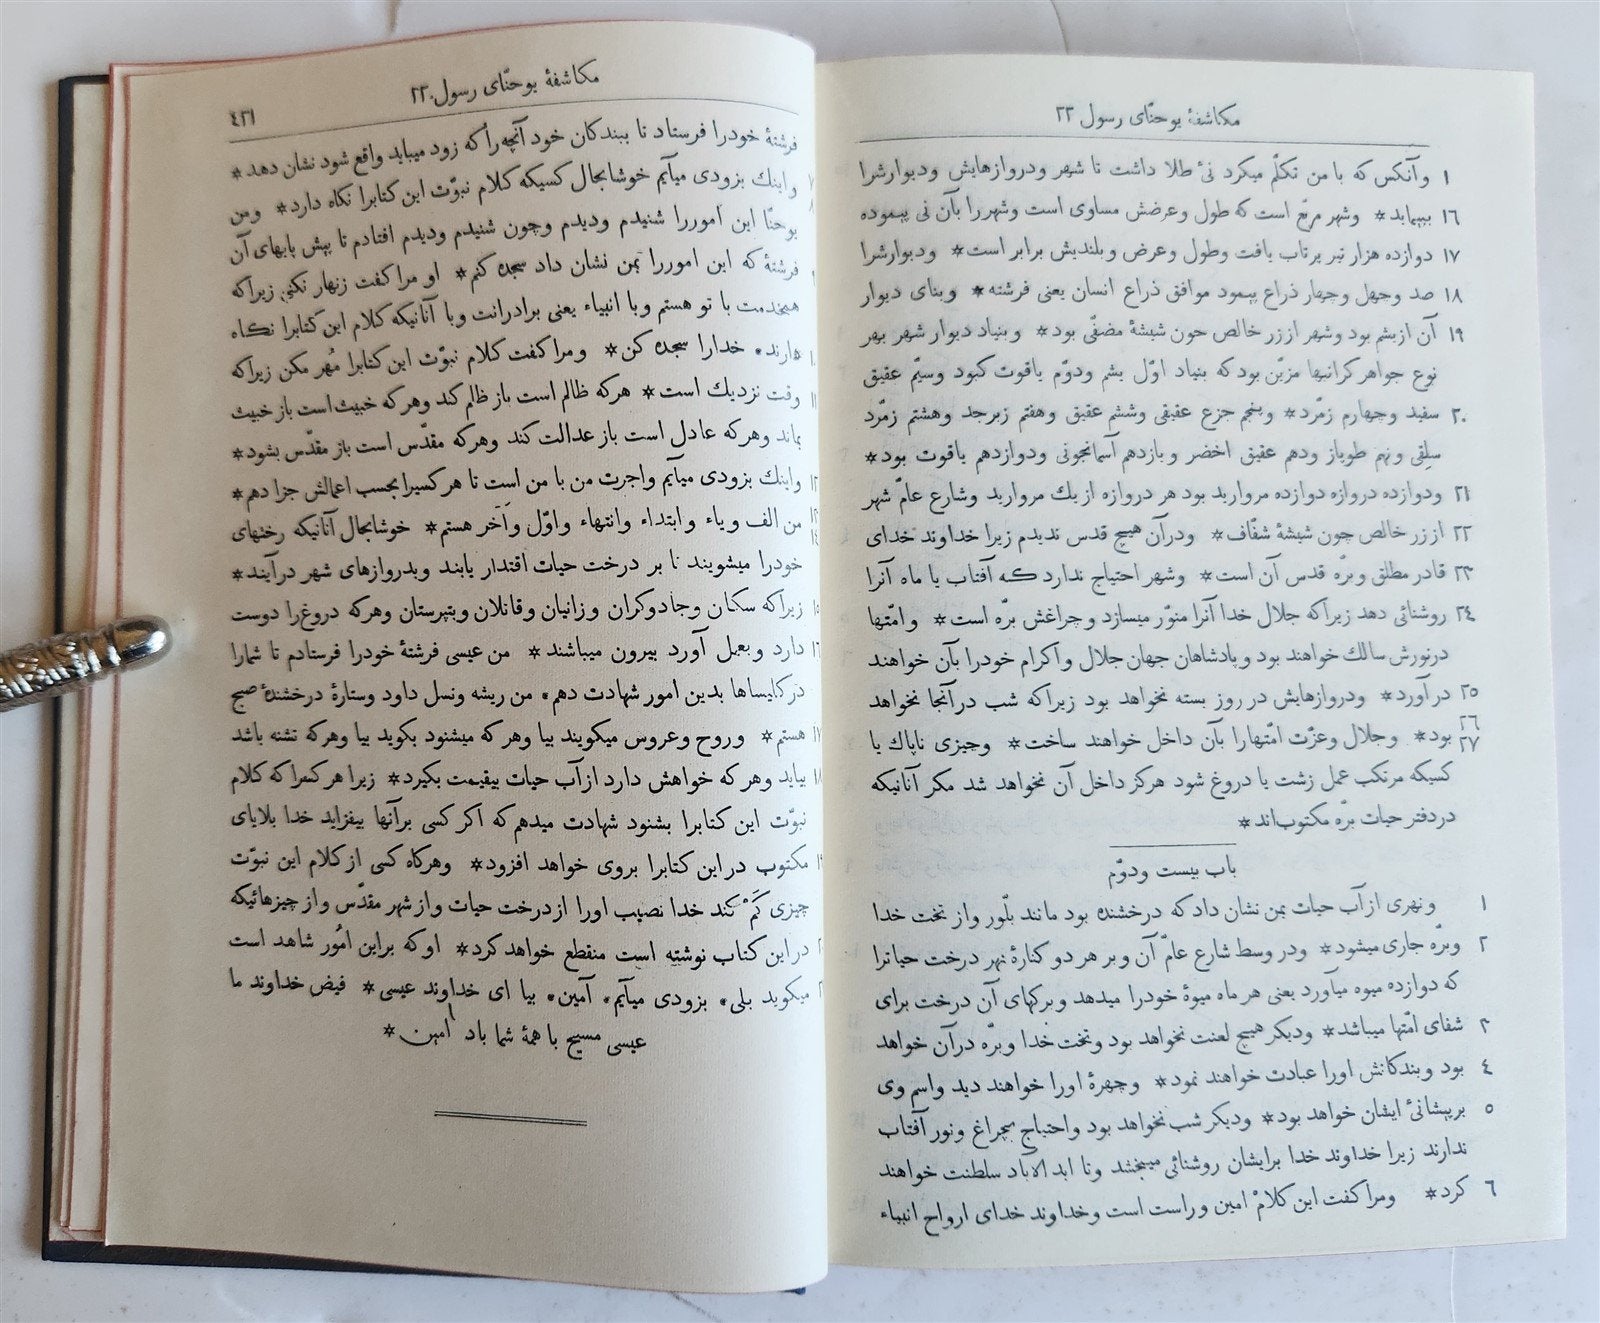 مکاشفهٔ یوحنّای رسول ۲۲
۱ وآنکس که با من تکلّم میکرد نیٔ طلا داشت تا شهر ودروازهایش ودیوارشرا
۱٦ بپیماید* وشهر مربّع است که طول وعرضش مساوی است وشهررا بآن نی پیموده
۱۷ دوازده هزار تیر پرتاب یافت وطول وعرض وبلندیش برابر است* ودیوارشرا
۱۸ صد وچهل وچهار ذراع پیمود موافق ذراع انسان یعنی فرشته* وبنای دیوار
۱۹ آن ازیشم بود وشهر اززر خالص چون شیشهٔ مصفّی بود* وبنیاد دیوار شهر بهر
نوع جواهر کرانبها مزیّن بود که بنیاد اوّل یشم ودوّم یاقوت کبود وسیّم عقیق
۲۰ سفید وچهارم زمرّد* وپنجم جزع عقیقی وششم عقیق وهفتم زبرجد وهشتم زمرّد
سلقی ونهم طوپاز ودهم عقیق اخضر ویازدهم آسمانجونی ودوازدهم یاقوت بود*
۲۱ ودوازده دروازه دوازده مروارید بود هر دروازه از یك مروارید وشارع عامّ شهر
۲۲ اززر خالص چون شیشهٔ شفّاف* ودرآن هیچ قدس ندیدم زیرا خداوند خدای
۲۳ قادر مطلق وبرّه قدس آن است* وشهر احتیاج ندارد که آفتاب یا ماه آنرا
۲٤ روشنائی دهد زیراکه جلال خدا آنرا منوّر میسازد وچراغش برّه است* وامّتها
درنورش سالك خواهند بود وپادشاهان جهان جلال واکرام خودرا بآن خواهند
۲٥ درآورد* ودروازهایش در روز بسته نخواهد بود زیراکه شب درآنجا نخواهد
۲٦ ۲۷ بود* وجلال وعزّت امّتهارا بآن داخل خواهند ساخت* وچیزی ناپاك یا
کسیکه مرتکب عمل زشت یا دروغ شود هرکز داخل آن نخواهد شد مکر آنانیکه
دردفتر حیات برّه مکتوب‌اند*
باب بیست ودوّم
۱ ونهری ازآب حیات بمن نشان داد که درخشنده بود مانند بلّور واز تخت خدا
۲ وبرّه جاری میشود* ودر وسط شارع عامّ آن وبر هر دو کنارهٔ نهر درخت حیاترا
که دوازده میوه میآورد یعنی هر ماه میوهٔ خودرا میدهد وبرکهای آن درخت برای
۳ شفای امّتها میباشد* ودیکر هیچ لعنت نخواهد بود وتخت خدا وبرّه درآن خواهد
٤ بود وبندکانش اورا عبادت خواهند نمود* وچهرهٔ اورا خواهند دید واسم وی
٥ برپیشانیٔ ایشان خواهد بود* ودیکر شب نخواهد بود واحتیاج بچراغ ونور آفتاب
ندارند زیرا خداوند خدا برایشان روشنائی میبخشد وتا ابد الآباد سلطنت خواهند
٦ کرد* ومرا کفت این کلام امین وراست است وخداوند خدای ارواح انبیاء
مکاشفهٔ یوحنّای رسول ۲۲
٤۳۱
فرشتهٔ خودرا فرستاد تا ببندکان خود آنچه‌را که زود میباید واقع شود نشان دهد*
واینك بزودی میآیم خوشابحال کسیکه کلام نبوّت این کتابرا نکاه دارد* ومن
یوحنّا این اموررا شنیدم ودیدم وچون شنیدم ودیدم افتادم تا پیش پایهای آن
فرشتهٔ که این اموررا بمن نشان داد سجده کنم* او مرا کفت زنهار نکنی زیراکه
همخدمت با تو هستم وبا انبیاء یعنی برادرانت وبا آنانیکه کلام این کتابرا نکاه
دارند. خدارا سجده کن* ومرا کفت کلام نبوّت این کتابرا مُهر مکن زیراکه
۱۱ وقت نزدیك است* هرکه ظالم است باز ظلم کند وهرکه خبیث است باز خبیث
بماند وهرکه عادل است باز عدالت کند وهرکه مقدّس است باز مقدّس بشود*
۱۲ واینك بزودی میآیم واجرت من با من است تا هرکسیرا بحسب اعمالش جزا دهم*
من الف ویاء وابتداء وانتهاء واوّل وآخر هستم* خوشابحال آنانیکه رختهای
خودرا میشویند تا بر درخت حیات اقتدار یابند وبدروازهای شهر درآیند*
زیراکه سکان وجادوکران وزانیان وقاتلان وبتپرستان وهرکه دروغ‌را دوست
دارد وبعمل آورد بیرون میباشند* من عیسی فرشتهٔ خودرا فرستادم تا شمارا
درکلیساها بدین امور شهادت دهم. من ریشه ونسل داود وستارهٔ درخشندهٔ صبح
هستم* وروح وعروس میکویند بیا وهرکه میشنود بکوید بیا وهرکه تشنه باشد
بیاید وهرکه خواهش دارد ازآب حیات بیقیمت بکیرد* زیرا هرکسرا که کلام
نبوّت این کتابرا بشنود شهادت میدهم که اکر کسی برآنها بیفزاید خدا بلایای
مکتوب دراین کتابرا بروی خواهد افزود* وهرکاه کسی ازکلام این نبوّت
چیزی کَمْ کند خدا نصیب اورا ازدرخت حیات واز شهر مقدّس واز چیزهائیکه
دراین کتاب نوشته است منقطع خواهد کرد* اوکه براین امُور شاهد است
میکوید بلی. بزودی میآیم. آمین. بیا ای خداوند عیسی* فیض خداوند ما
عیسی مسیح با همهٔ شما باد آمین*